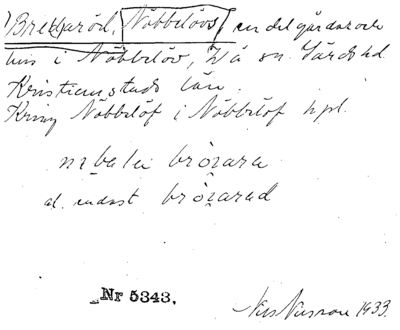 Bredaröd, Nöbbelövs, en del gårdar och
hus i Nöbbelöv, Vä sn. Gärds hd.
Kristianstads län.
Kring Nöbbelöf i Nöbbelöf hpl.
al. endast
Nr 5343.
Nils Nilsson 1933.